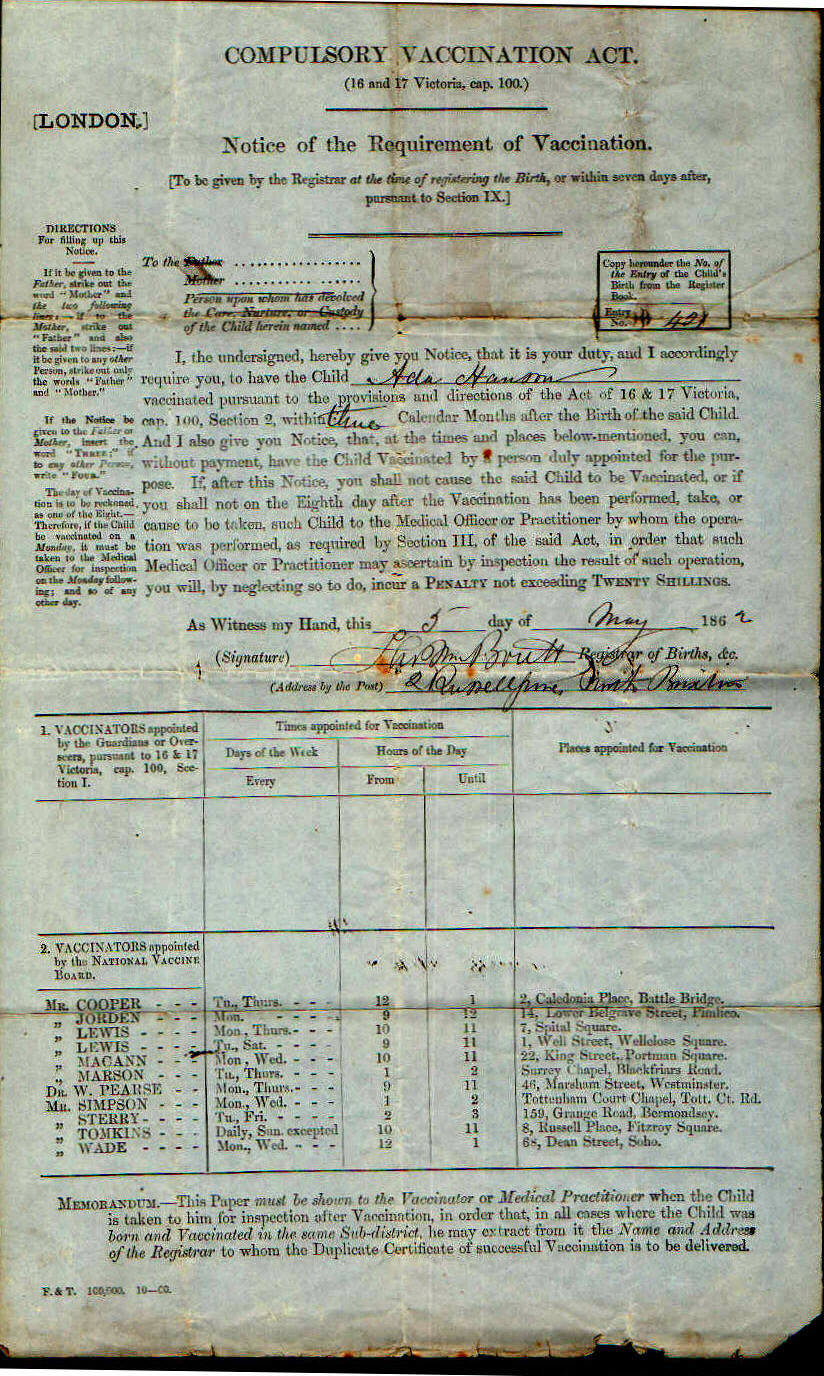 COMPULSORY VACCINATION ACT.
(16 and 17 Victoria, cap. 100.)
[LONDON,]
Notice of the Requirement of Vaccination.
[To be given by the Registrar at the time of registering the Birth, or within seven days after,
pursuant to Section IX.]
DIRECTIONS
For filling up this
Notice.
If it be given to the
Father, strike out the
word "Mother" and
the two following
lines:—if to the
Mother, strike out
"Father" and also
the said two lines:—if
it be given to any other
Person, strike out only
the words "Father"
and "Mother."
If the Notice be
given to the Father or
Mother, insert the
word "THREE;" if
to any other Person,
write "FOUR."
The day of Vaccina-
tion is to be reckoned,
as one of the Eight.—
Therefore, if the Child
be vaccinated on a
Monday, it must be
taken to the Medical
Officer for inspection
on the Monday follow-
ing; and so of any
other day.
To the Father ..................
Mother ..................
Person upon whom has devolved
the Care, Nurture, or Custody
of the Child herein named ....
Copy hereunder the No. of
the Entry of the Child's
Birth from the Register
Book.
Entry
No. 421
I, the undersigned, hereby give you Notice, that it is your duty, and I accordingly
require you, to have the Child Ada Hanson
vaccinated pursuant to the provisions and directions of the Act of 16 & 17 Victoria,
cap. 100, Section 2, within three Calendar Months after the Birth of the said Child.
And I also give you Notice, that, at the times and places below-mentioned, you can,
without payment, have the Child Vaccinated by a person duly appointed for the pur-
pose. If, after this Notice, you shall not cause the said Child to be Vaccinated, or if
you shall not on the Eighth day after the Vaccination has been performed, take, or
cause to be taken, such Child to the Medical Officer or Practitioner by whom the opera-
tion was performed, as required by Section III, of the said Act, in order that such
Medical Officer or Practitioner may ascertain by inspection the result of such operation,
you will, by neglecting so to do, incur a PENALTY not exceeding TWENTY SHILLINGS.
As Witness my Hand, this 5 day of May 1862
(Signature) Registrar of Births, &c.
(Address by the Post) 2 Russell
1. VACCINATORS appointed
by the Guardians or Over-
seers, pursuant to 16 & 17
Victoria, cap. 100, Sec-
tion I.
Times appointed for Vaccination
Days of the Week Hours of the Day Places appointed for Vaccination
Every From Until
2. VACCINATORS appointed
by the NATIONAL VACCINE
BOARD.
MR. COOPER - - - Tu., Thurs. - - - 12 1 2, Caledonia Place, Battle Bridge.
„ JORDEN - - - Mon. - - - - 9 12 14, Lower Belgrave Street, Pimlico.
„ LEWIS - - - - Mon., Thurs. - - - 10 11 7, Spital Square.
„ LEWIS - - - - Tu., Sat. - - - - 9 11 1, Well Street, Wellclose Square.
„ MACANN - - - Mon., Wed. - - - 10 11 22, King Street, Portman Square.
„ MARSON - - - Tu., Thurs. - - - 1 2 Surrey Chapel, Blackfriars Road.
DR. W. PEARSE - - Mon., Thurs. - - - 9 11 46, Marsham Street, Westminster.
MR. SIMPSON - - - Mon., Wed. - - - 1 2 Tottenham Court Chapel, Tott. Ct. Rd.
„ STERRY - - - - Tu., Fri. - - - - 2 3 159, Grange Road, Bermondsey.
„ TOMKINS - - - Daily, Sun. excepted 10 11 8, Russell Place, Fitzroy Square.
„ WADE - - - - Mon., Wed. - - - 12 1 68, Dean Street, Soho.
MEMORANDUM.—This Paper must be shown to the Vaccinator or Medical Practitioner when the Child
is taken to him for inspection after Vaccination, in order that, in all cases where the Child was
born and Vaccinated in the same Sub-district, he may extract from it the Name and Address
of the Registrar to whom the Duplicate Certificate of successful Vaccination is to be delivered.
F. & T. 100,000. 10—60.